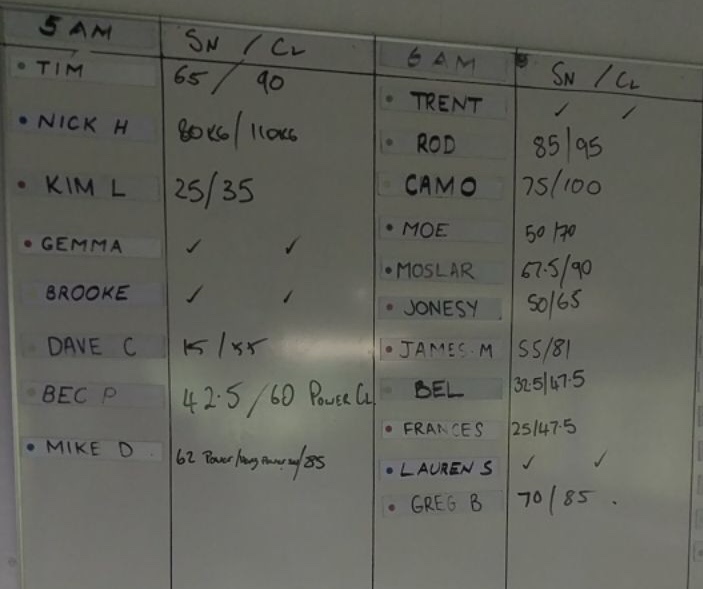 5 AM SN / CL
TIM 65 / 90
NICK H 80KG / 110KG
KIM L 25/35
GEMMA ✓ ✓
BROOKE ✓ ✓
DAVE C
BEC P 42.5 / 60 POWER CL
MIKE D 62 Power / /85
6 AM SN / CL
TRENT ✓ ✓
ROD 85/95
CAMO 75/100
MOE 50/70
MOSLAR 67.5/90
JONESY 50/65
JAMES.M 55/81
BEL 32.5/47.5
FRANCES 25/47.5
LAUREN S ✓ ✓
GREG B 70/85 .